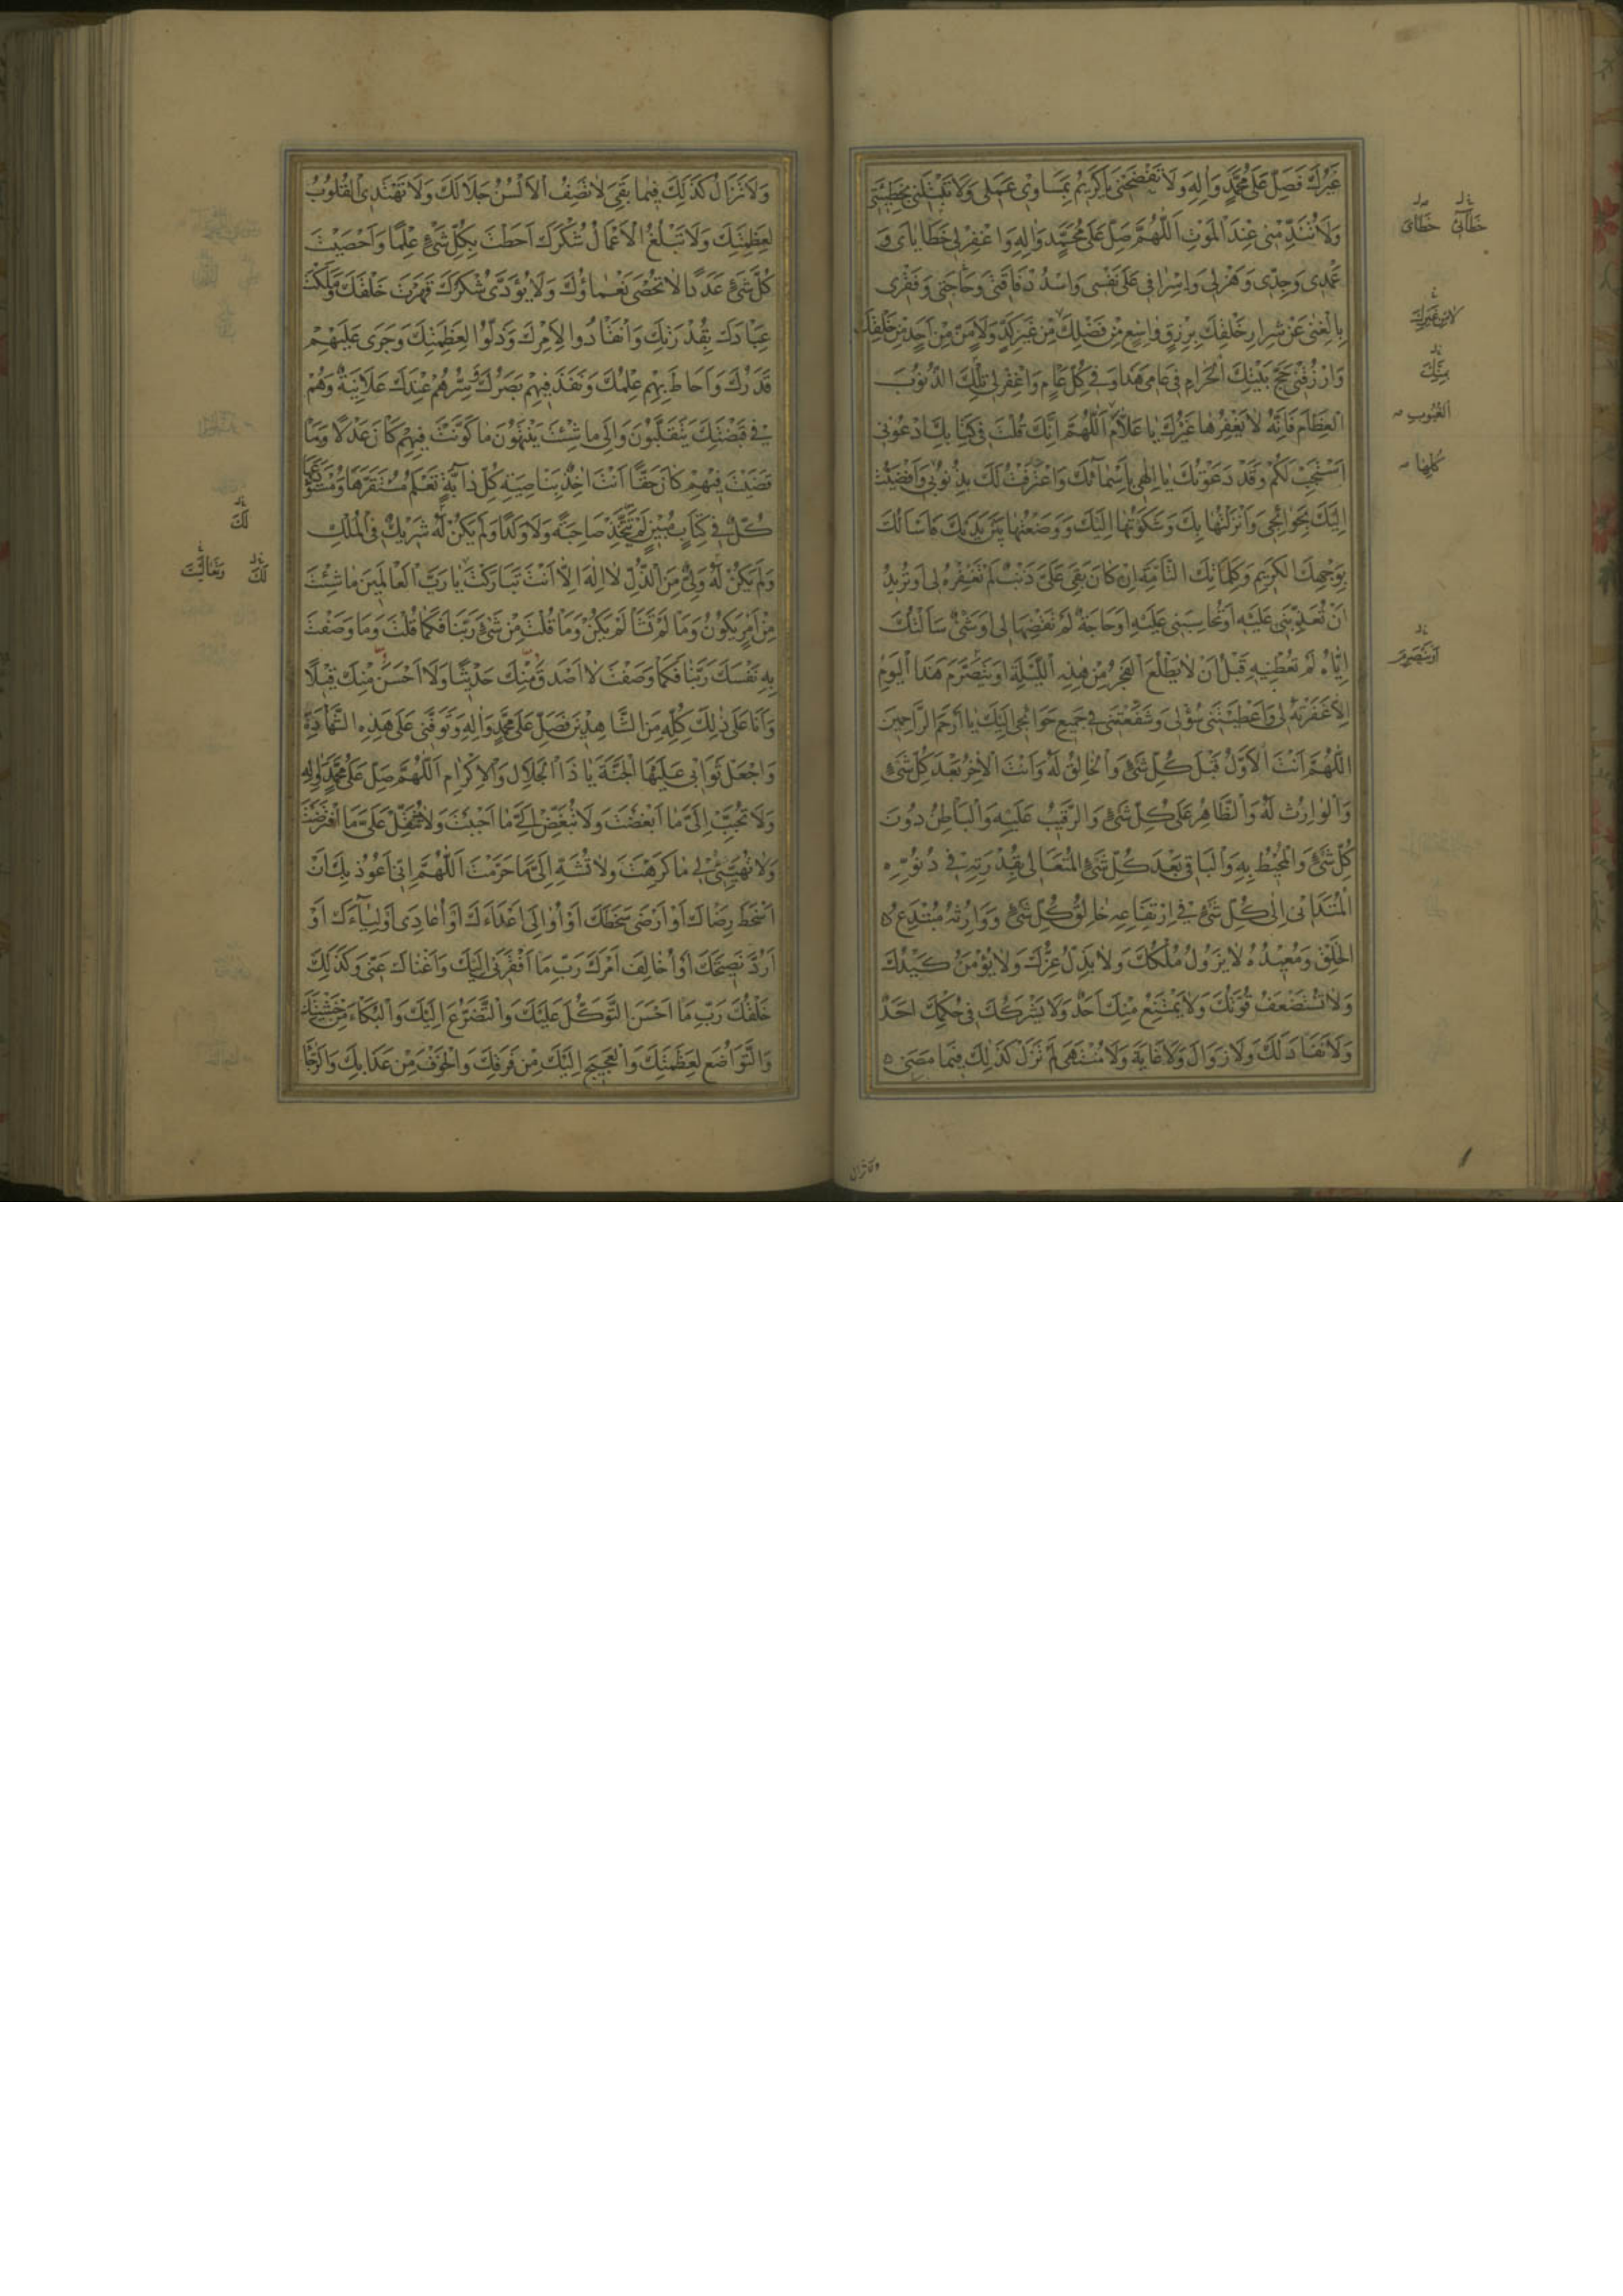 غَيْرُكَ فَصَلِّ عَلَى مُحَمَّدٍ وَالِهِ وَلَا تَفْضَحْنِي يَا كَرِيمُ بِمَسَاوِي عَمَلِي وَلَا تَبْتَلِنِي بِخَطِيئَتِي
وَلَا تُنَدِّمْنِي عِنْدَ الْمَوْتِ اَللّٰهُمَّ صَلِّ عَلَى مُحَمَّدٍ وَالِهِ وَاغْفِرْ لِي خَطَايَاىَ وَ
عَمْدِي وَجِدِّي وَهَزْلِي وَاِسْرَافِي عَلَى نَفْسِي وَاسْدُدْ فَاقَتِي وَحَاجَتِي وَفَقْرِي
بِالْغِنٰى عَنْ شِرَارِ خَلْقِكَ بِرِزْقٍ وَاسِعٍ مِنْ فَضْلِكَ مِنْ غَيْرِ كَدٍّ وَلَا مَنٍّ مِنْ اَحَدٍ مِنْ خَلْقِكَ
وَارْزُقْنِي حَجَّ بَيْتِكَ الْحَرَامِ فِي عَامِي هَذَا وَفِي كُلِّ عَامٍ وَاغْفِرْ لِي تِلْكَ الذُّنُوبَ
الْعِظَامَ فَاِنَّهُ لَا يَغْفِرُهَا غَيْرُكَ يَا عَلَّامُ اَللّٰهُمَّ اِنَّكَ قُلْتَ فِي كِتَابِكَ ادْعُونِي
اَسْتَجِبْ لَكُمْ وَقَدْ دَعَوْتُكَ يَا اِلٰهِي بِاَسْمَائِكَ وَاعْتَرَفْتُ لَكَ بِذُنُوبِي وَاَفْضَيْتُ
اِلَيْكَ بِحَوَائِجِي وَاَنْزَلْتُهَا بِكَ وَشَكَوْتُهَا اِلَيْكَ وَوَضَعْتُهَا بَيْنَ يَدَيْكَ فَاَسْاَلُكَ
بِوَجْهِكَ الْكَرِيمِ وَكَلِمَاتِكَ التَّامَّةِ اِنْ كَانَ بَقِيَ عَلَيَّ ذَنْبٌ لَمْ تَغْفِرْهُ لِي اَوْ تُرِيدُ
اَنْ تُعَذِّبَنِي عَلَيْهِ اَوْ تُحَاسِبَنِي عَلَيْهِ اَوْ حَاجَةٌ لَمْ تَقْضِهَا لِي اَوْ شَيْءٌ سَاَلْتُكَ
اِيَّاهُ لَمْ تُعْطِنِيهِ قَبْلَ اَنْ لَا يَطْلُعَ الْفَجْرُ مِنْ هٰذِهِ اللَّيْلَةِ اَوْ يَتَصَرَّمَ هَذَا الْيَوْمُ
اِلَّا غَفَرْتَهُ لِي وَاَعْطَيْتَنِي سُؤْلِي وَشَفَّعْتَنِي فِي جَمِيعِ حَوَائِجِي اِلَيْكَ يَا اَرْحَمَ الرَّاحِمِينَ
اَللّٰهُمَّ اَنْتَ الْاَوَّلُ قَبْلَ كُلِّ شَيْءٍ وَالْخَالِقُ لَهُ وَاَنْتَ الْاٰخِرُ بَعْدَ كُلِّ شَيْءٍ
وَالْوَارِثُ لَهُ وَالظَّاهِرُ عَلَى كُلِّ شَيْءٍ وَالرَّقِيبُ عَلَيْهِ وَالْبَاطِنُ دُونَ
كُلِّ شَيْءٍ وَالْمُحِيطُ بِهِ وَالْبَاقِي بَعْدَ كُلِّ شَيْءٍ الْمُتَعَالِي بِقُدْرَتِهِ فِي دُنُوِّهِ
الْمُتَدَانِي اِلٰى كُلِّ شَيْءٍ فِي ارْتِفَاعِهِ خَالِقُ كُلِّ شَيْءٍ وَوَارِثُهُ مُبْتَدِعُ
الْخَلْقِ وَمُعِيدُهُ لَا يَزُولُ مُلْكُكَ وَلَا يَذِلُّ عِزُّكَ وَلَا يُؤْمَنُ كَيْدُكَ
وَلَا تُسْتَضْعَفُ قُوَّتُكَ وَلَا يَمْتَنِعُ مِنْكَ اَحَدٌ وَلَا يَشْرَكُكَ فِي حُكْمِكَ اَحَدٌ
وَلَا نَفَادَ لَكَ وَلَا زَوَالَ وَلَا غَايَةَ وَلَا مُنْتَهٰى لَمْ تَزَلْ كَذَلِكَ فِيمَا مَضٰى
خَطَائِي خَطَايَ
لا من غيرك
الغيوب
كلها
أو ينصرم
ولا تزال
وَلَا تَزَالُ كَذَلِكَ فِيمَا بَقِيَ لَا تَصِفُ الْاَلْسُنُ جَلَالَكَ وَلَا تَهْتَدِي الْقُلُوبُ
لِعَظَمَتِكَ وَلَا تَبْلُغُ الْاَعْمَالُ شُكْرَكَ اَحَطْتَ بِكُلِّ شَيْءٍ عِلْمًا وَاَحْصَيْتَ
كُلَّ شَيْءٍ عَدَدًا لَا تُحْصٰى نَعْمَاؤُكَ وَلَا يُؤَدّٰى شُكْرُكَ قَهَرْتَ خَلْقَكَ وَمَلَكْتَ
عِبَادَكَ بِقُدْرَتِكَ وَانْقَادُوا لِاَمْرِكَ وَذَلُّوا لِعَظَمَتِكَ وَجَرَى عَلَيْهِمْ
قَدَرُكَ وَاَحَاطَ بِهِمْ عِلْمُكَ وَنَفَذَ فِيهِمْ بَصَرُكَ سِرُّهُمْ عِنْدَكَ عَلَانِيَةٌ وَهُمْ
فِي قَبْضَتِكَ يَتَقَلَّبُونَ وَاِلٰى مَا شِئْتَ يَنْتَهُونَ مَا كَوَّنْتَ فِيهِمْ كَانَ عَدْلًا وَمَا
قَضَيْتَ فِيهِمْ كَانَ حَقًّا اَنْتَ اٰخِذٌ بِنَاصِيَةِ كُلِّ دَابَّةٍ تَعْلَمُ مُسْتَقَرَّهَا وَمُسْتَوْدَعَهَا
كُلٌّ فِي كِتَابٍ مُبِينٍ لَمْ تَتَّخِذْ صَاحِبَةً وَلَا وَلَدًا وَلَمْ يَكُنْ لَهُ شَرِيكٌ فِي الْمُلْكِ
وَلَمْ يَكُنْ لَهُ وَلِيٌّ مِنَ الذُّلِّ لَا اِلٰهَ اِلَّا اَنْتَ تَبَارَكْتَ يَا رَبَّ الْعَالَمِينَ مَا شِئْتَ
مِنْ اَمْرٍ يَكُونُ وَمَا لَمْ تَشَأْ لَمْ يَكُنْ وَمَا قُلْتَ مِنْ شَيْءٍ رَبَّنَا فَكَمَا قُلْتَ وَمَا وَصَفْتَ
بِهِ نَفْسَكَ رَبَّنَا فَكَمَا وَصَفْتَ لَا اَصْدَقَ مِنْكَ حَدِيثًا وَلَا اَحْسَنَ مِنْكَ قِيلًا
وَاَنَا عَلَى ذٰلِكَ كُلِّهِ مِنَ الشَّاهِدِينَ فَصَلِّ عَلَى مُحَمَّدٍ وَالِهِ وَتَوَفَّنِي عَلَى هَذِهِ الشَّهَادَةِ
وَاجْعَلْ ثَوَابِي عَلَيْهَا الْجَنَّةَ يَا ذَا الْجَلَالِ وَالْاِكْرَامِ اَللّٰهُمَّ صَلِّ عَلَى مُحَمَّدٍ وَالِهِ
وَلَا تُحَبِّبْ اِلَيَّ مَا اَبْغَضْتَ وَلَا تُبَغِّضْ اِلَيَّ مَا اَحْبَبْتَ وَلَا تُثَقِّلْ عَلَيَّ مَا افْتَرَضْتَ
وَلَا تُهَيِّئْ لِي مَا كَرِهْتَ وَلَا تُشَهِّ اِلَيَّ مَا حَرَّمْتَ اَللّٰهُمَّ اِنِّي اَعُوذُ بِكَ اَنْ
اَسْخَطَ رِضَاكَ اَوْ اَرْضٰى سَخَطَكَ اَوْ اُوَالِيَ اَعْدَاءَكَ اَوْ اُعَادِيَ اَوْلِيَاءَكَ اَوْ
اَرُدَّ نَصِيحَتَكَ اَوْ اُخَالِفَ اَمْرَكَ رَبِّ مَا اَفْقَرَنِي اِلَيْكَ وَاَغْنَاكَ عَنِّي وَكَذَلِكَ
خَلْقُكَ رَبِّ مَا اَحْسَنَ التَّوَكُّلَ عَلَيْكَ وَالتَّضَرُّعَ اِلَيْكَ وَالْبُكَاءَ مِنْ خَشْيَتِكَ
وَالتَّوَاضُعَ لِعَظَمَتِكَ وَالْعَجِيجَ اِلَيْكَ مِنْ فَرَقِكَ وَالْخَوْفَ مِنْ عَذَابِكَ وَالرَّجَا
لَكَ
لَكَ وَتَعَالَيْتَ